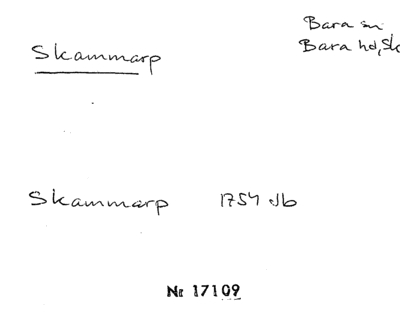 Skammarp
Bara sn
Bara hd, Sk
Skammarp 1754 Jb
Nr 17109